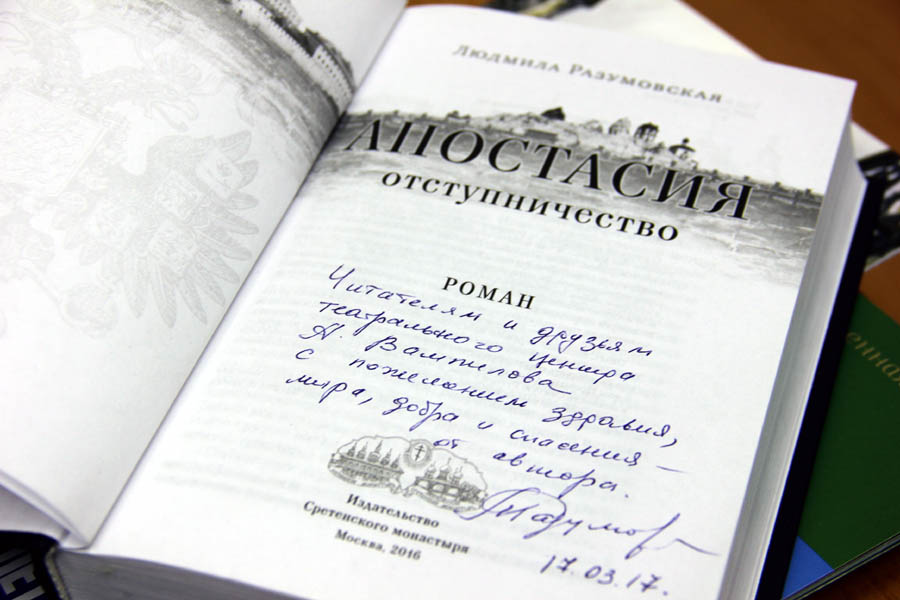 Людмила Разумовская
АПОСТАСИЯ
отступничество
РОМАН
Читателям и друзьям
театрального центра
А. Вампилова
с пожеланием здравия,
мира, добра и спасения –
от автора.
Разумов
17.03.17.
Издательство
Сретенского монастыря
Москва, 2016
енная